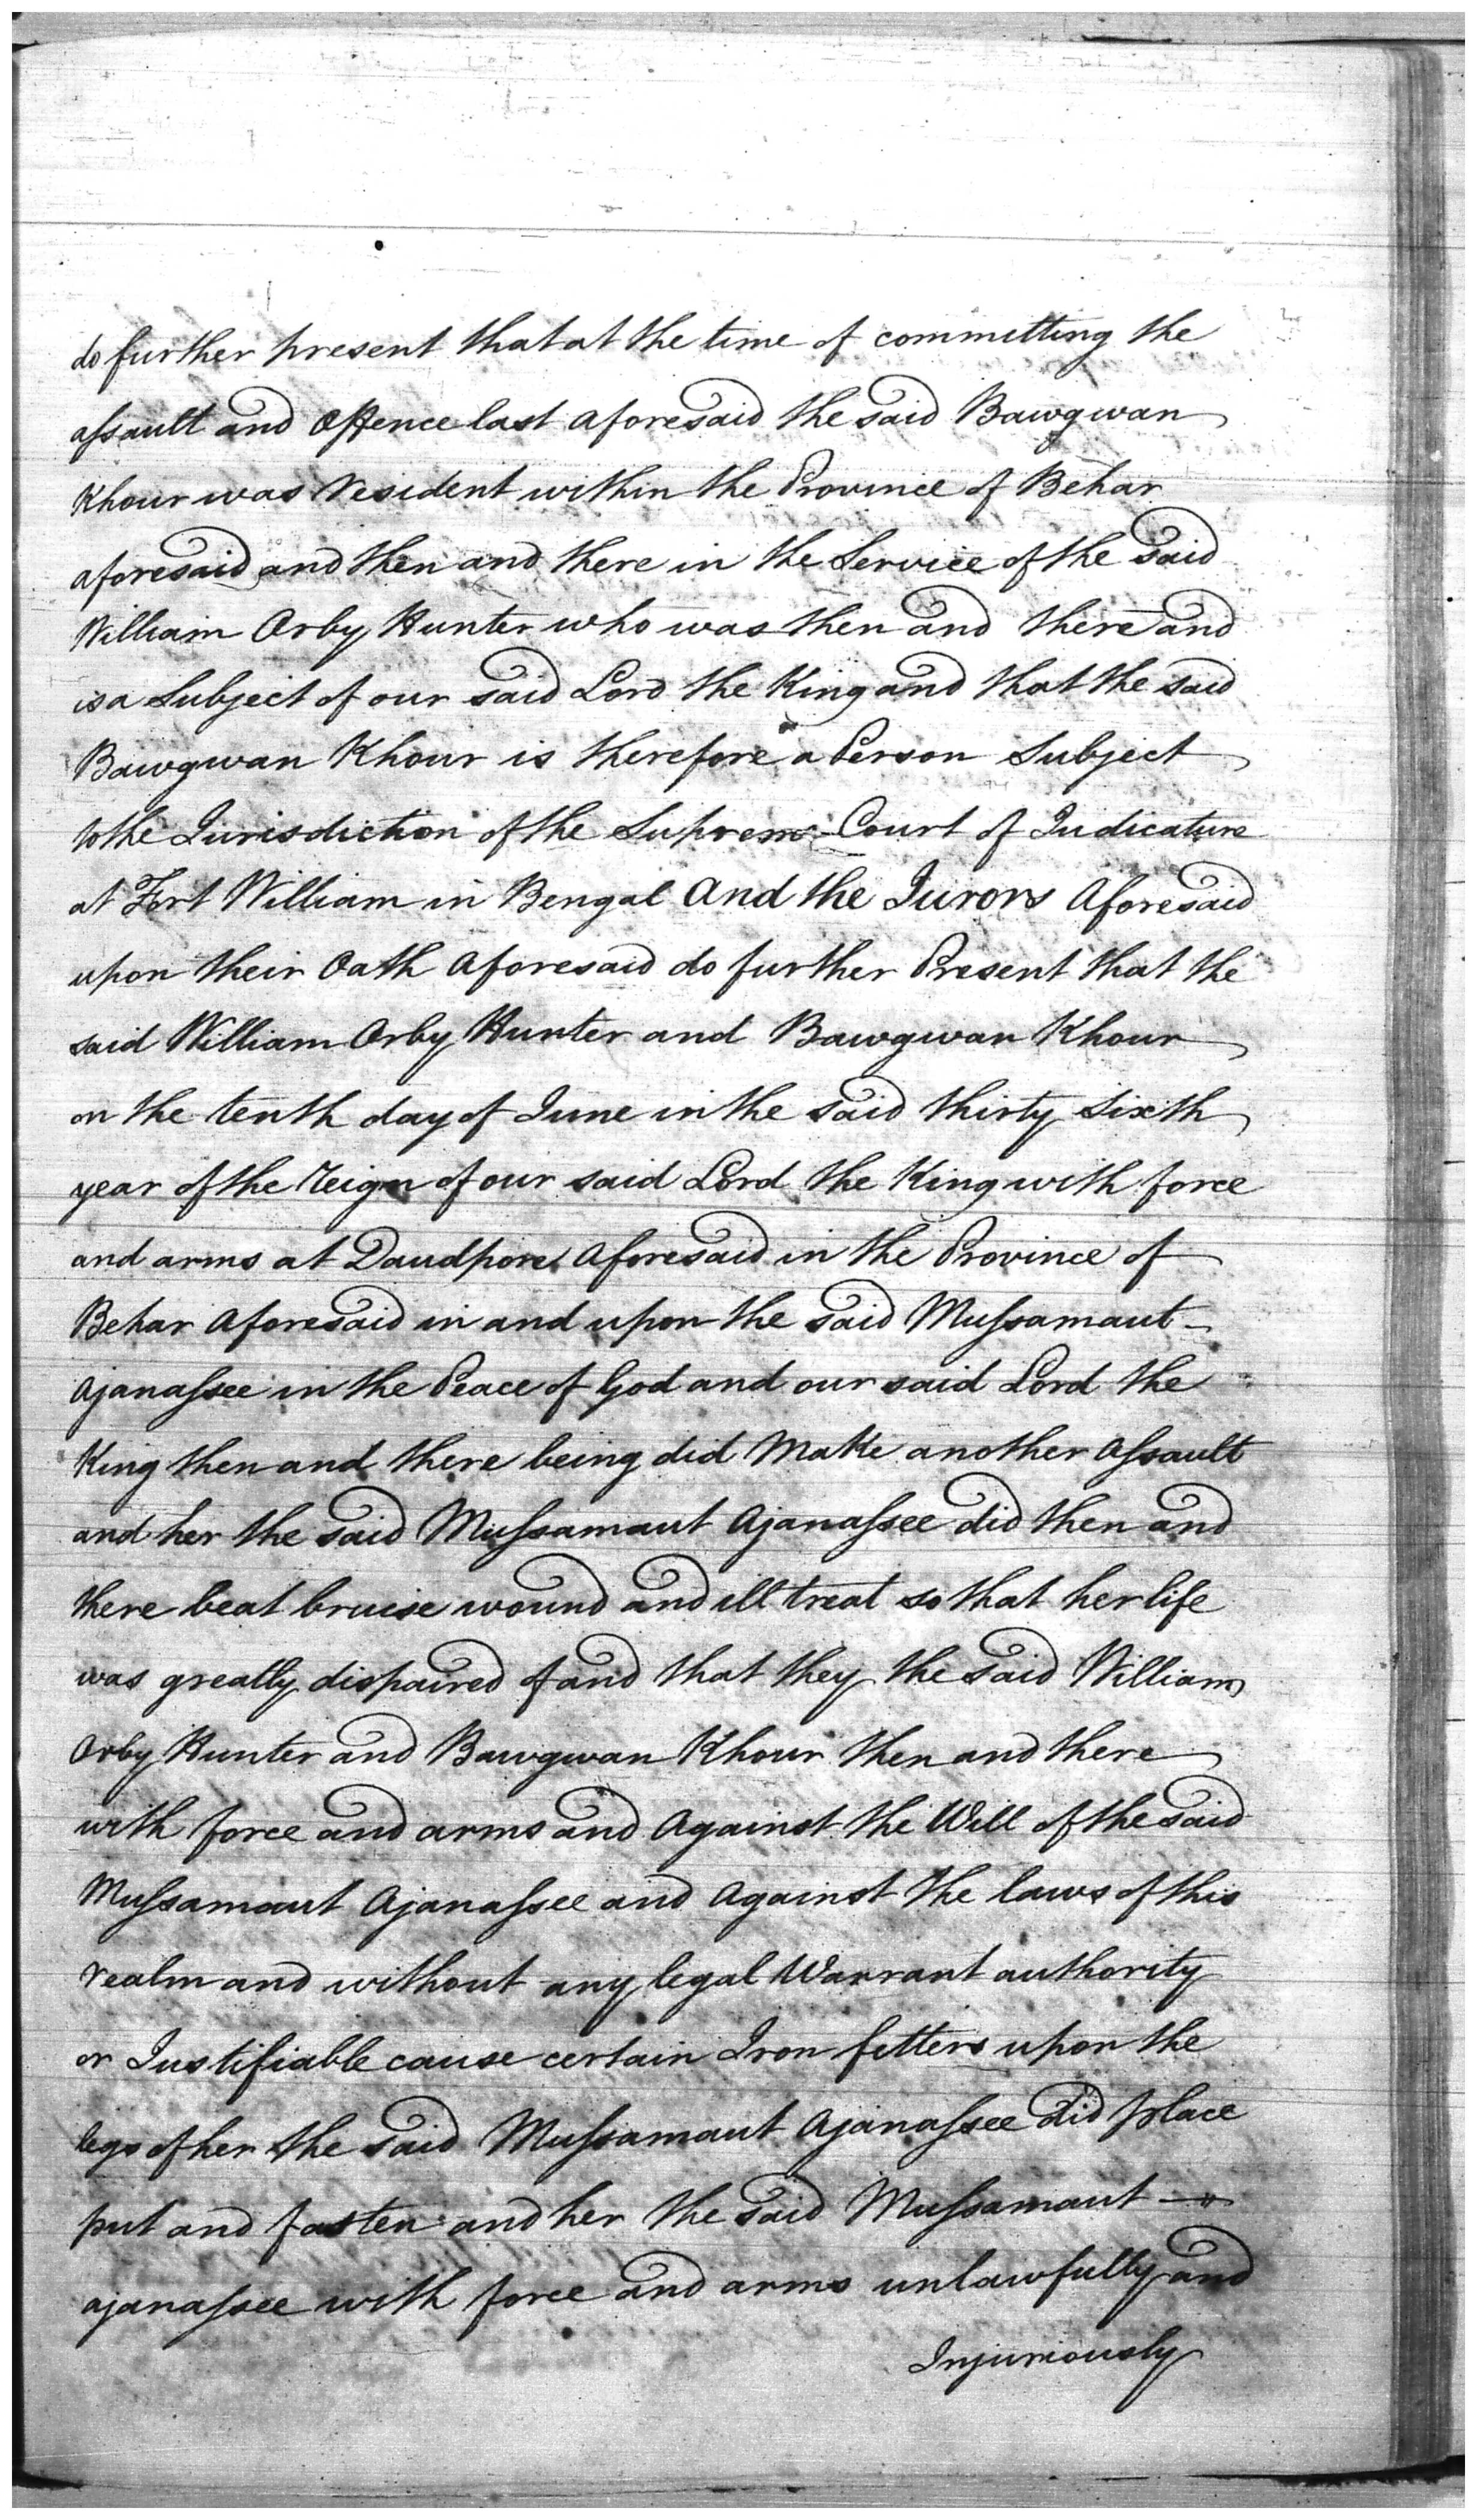 do further present that at the time of committing the
aſsault and Offence last aforesaid the said Bawgwan
Khour was resident within the Province of Behar
aforesaid and then and there in the Service of the said
William Orby Hunter who was then and there and
is a Subject of our said Lord the King and that the said
Bawgwan Khour is therefore a Person Subject
to the Jurisdiction of the Supreme Court of Judicature
at Fort William in Bengal And the Jurors Aforesaid
upon their Oath Aforesaid do further Present that the
said William Orby Hunter and Bawgwan Khour
on the tenth day of June in the said thirty sixth
year of the reign of our said Lord the King with force
and arms at Daudpore Aforesaid in the Province of
Behar Aforesaid in and upon the said Muſsamaut
Ajanaſsee in the Peace of God and our said Lord the
King then and there being did Make another Aſsault
and her the said Muſsamaut Ajanaſsee did then and
there beat bruise wound and ill treat so that her life
was greatly dispaired of and that they the said William
Orby Hunter and Bawgwan Khour then and there
with force and arms and Against the Will of the said
Muſsamaut Ajanaſsee and Against the laws of this
realm and without any legal Warrant authority
or Justifiable cause certain Iron fetters upon the
legs of her the said Muſsamaut Ajanaſsee did place
put and fasten and her the said Muſsamaut
ajanaſsee with force and arms unlawfully and
Injuriously